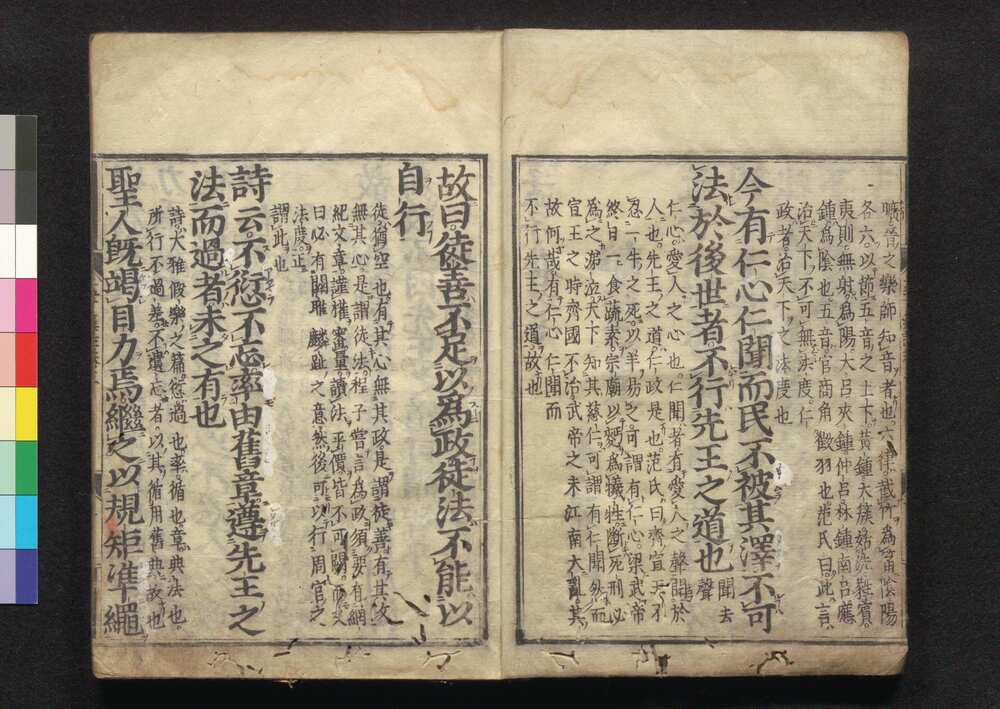 職音之樂師知音者也六律截竹爲筩陰陽
各六以節五音之上下黃鍾大蔟姑洗蕤賓
夷則無射爲陽大呂夾鍾仲呂林鍾南呂應
鍾爲陰也五音宮商角徵羽也范氏曰此言
治天下不可無法度仁
政者治天下之法度也
今有仁心仁聞而民不被其澤不可
法於後世者不行先王之道也聞去
聲
仁心愛人之心也仁聞者有愛人之聲聞於
人也先王之道仁政是也范氏曰齊宣王不
忍一牛之死以羊易之可謂有仁心梁武帝
終日一食蔬素宗廟以麪爲犧牲斷死刑必
爲之涕泣天下知其慈仁可謂有仁聞然而
宣王之時齊國不治武帝之末江南大亂其
故何哉有仁心仁聞而
不行先王之道故也
故曰徒善不足以爲政徒法不能以
自行
徒猶空也有其心無其政是謂徒善有其政
無其心是謂徒法程子嘗言爲政須要有綱
紀文章謹權審量讀法平價皆不可闕而又
曰必有關雎麟趾之意然後可以行周官之
法度正
謂此也
詩云不愆不忘率由舊章遵先王之
法而過者未之有也
詩大雅假樂之篇愆過也率循也章典法也
所行不過差不遺忘者以其循用舊典故也
聖人既竭目力焉繼之以規矩準繩